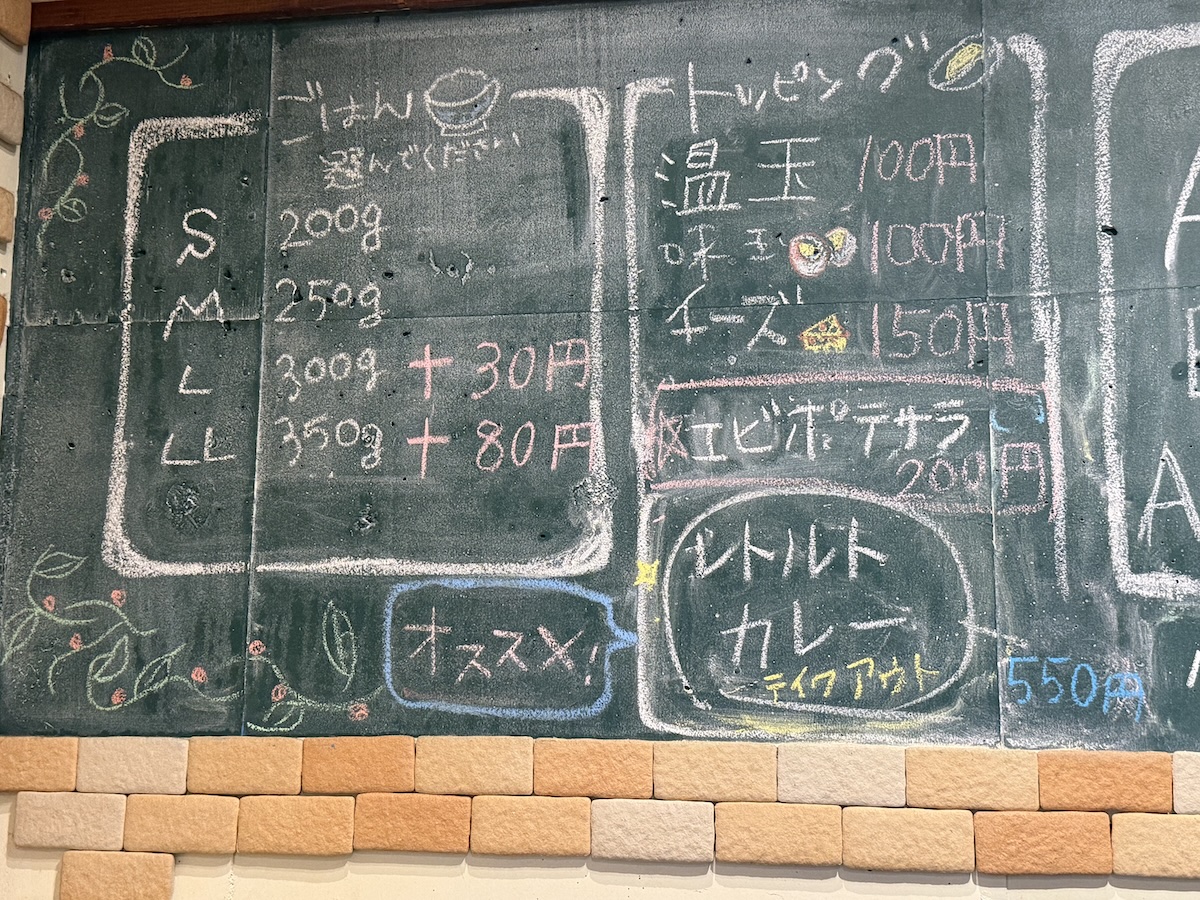 ごはん
選んでください
S 200g
M 250g
L 300g +30円
LL 350g +80円
トッピング
温玉 100円
味玉 100円
チーズ 150円
エビポテサラ
200円
オススメ!
レトルト
カレー
テイクアウト
550円
A
A